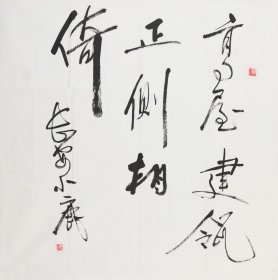 高屋建瓴
正側相
倚
长安小鹿